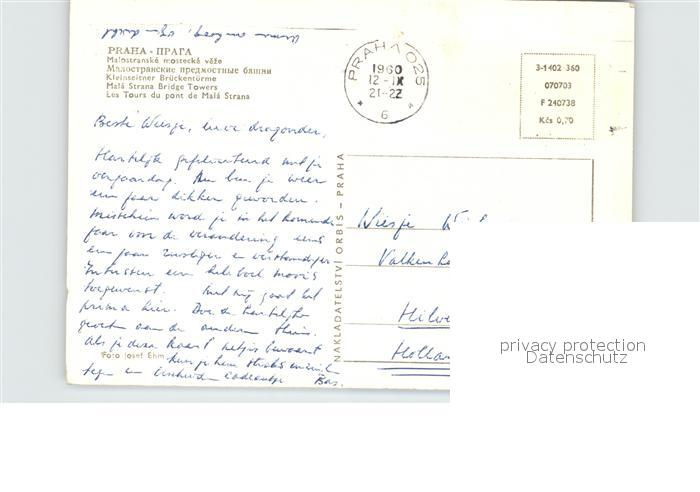 PRAHA - ПРАГА
Malostranské mostecká věže
Малостранские предмостные башни
Kleinseitner Brückentürme
Malá Strana Bridge Towers
Les Tours du pont de Malá Strana
PRAHA 025
1960
12-IX
21-22
6
3-1402 360
070703
F 240738
Kčs 0,70
Beste Wiesje, dragonder,
Hartelijk gefeliciteerd met je
verjaardag. Nu ben je weer
een jaar dikker geworden.
Misschien word je in het komende
jaar voor de verandering eens
een jaar rustiger en verstandiger
Intussen een heleboel moois
toegewenst. Met mij gaat het
prima hier. Doe de hartelijke
groeten aan de anderen thuis.
Als je deze kaart netjes bewaart
Foto Josef Ehm
kun je hem straks
tegen een cadeautje Bas.
NAKLADATELSTVÍ ORBIS - PRAHA
Wiesje
Hilve
Hollan
privacy protection
Datenschutz